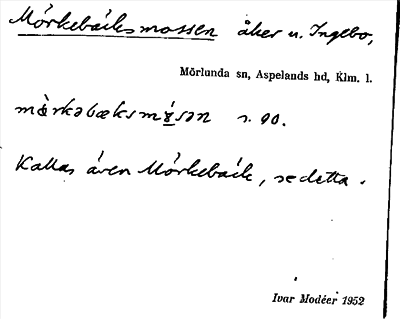 Mörkebäcksmossen åker u. Ingebo,
Mörlunda sn, Aspelands hd, Klm. l.
s. 90.
Kallas även Mörkebäck, se detta.
Ivar Modéer 1952